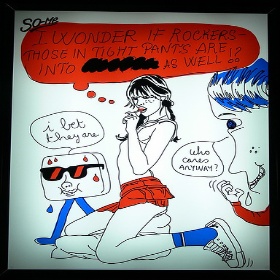 SO-ME
I WONDER IF ROCKERS-
THOSE IN TIGHT PANTS ARE
INTO AS WELL!?
i bet
they are
who
cares
ANYWAY?